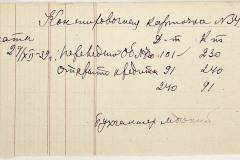 Контировочная карточка №34
Дата Д-т К-т
27/XII-39. переведено 101 230
открыто кредита 91 240
240 91
Бухгалтер